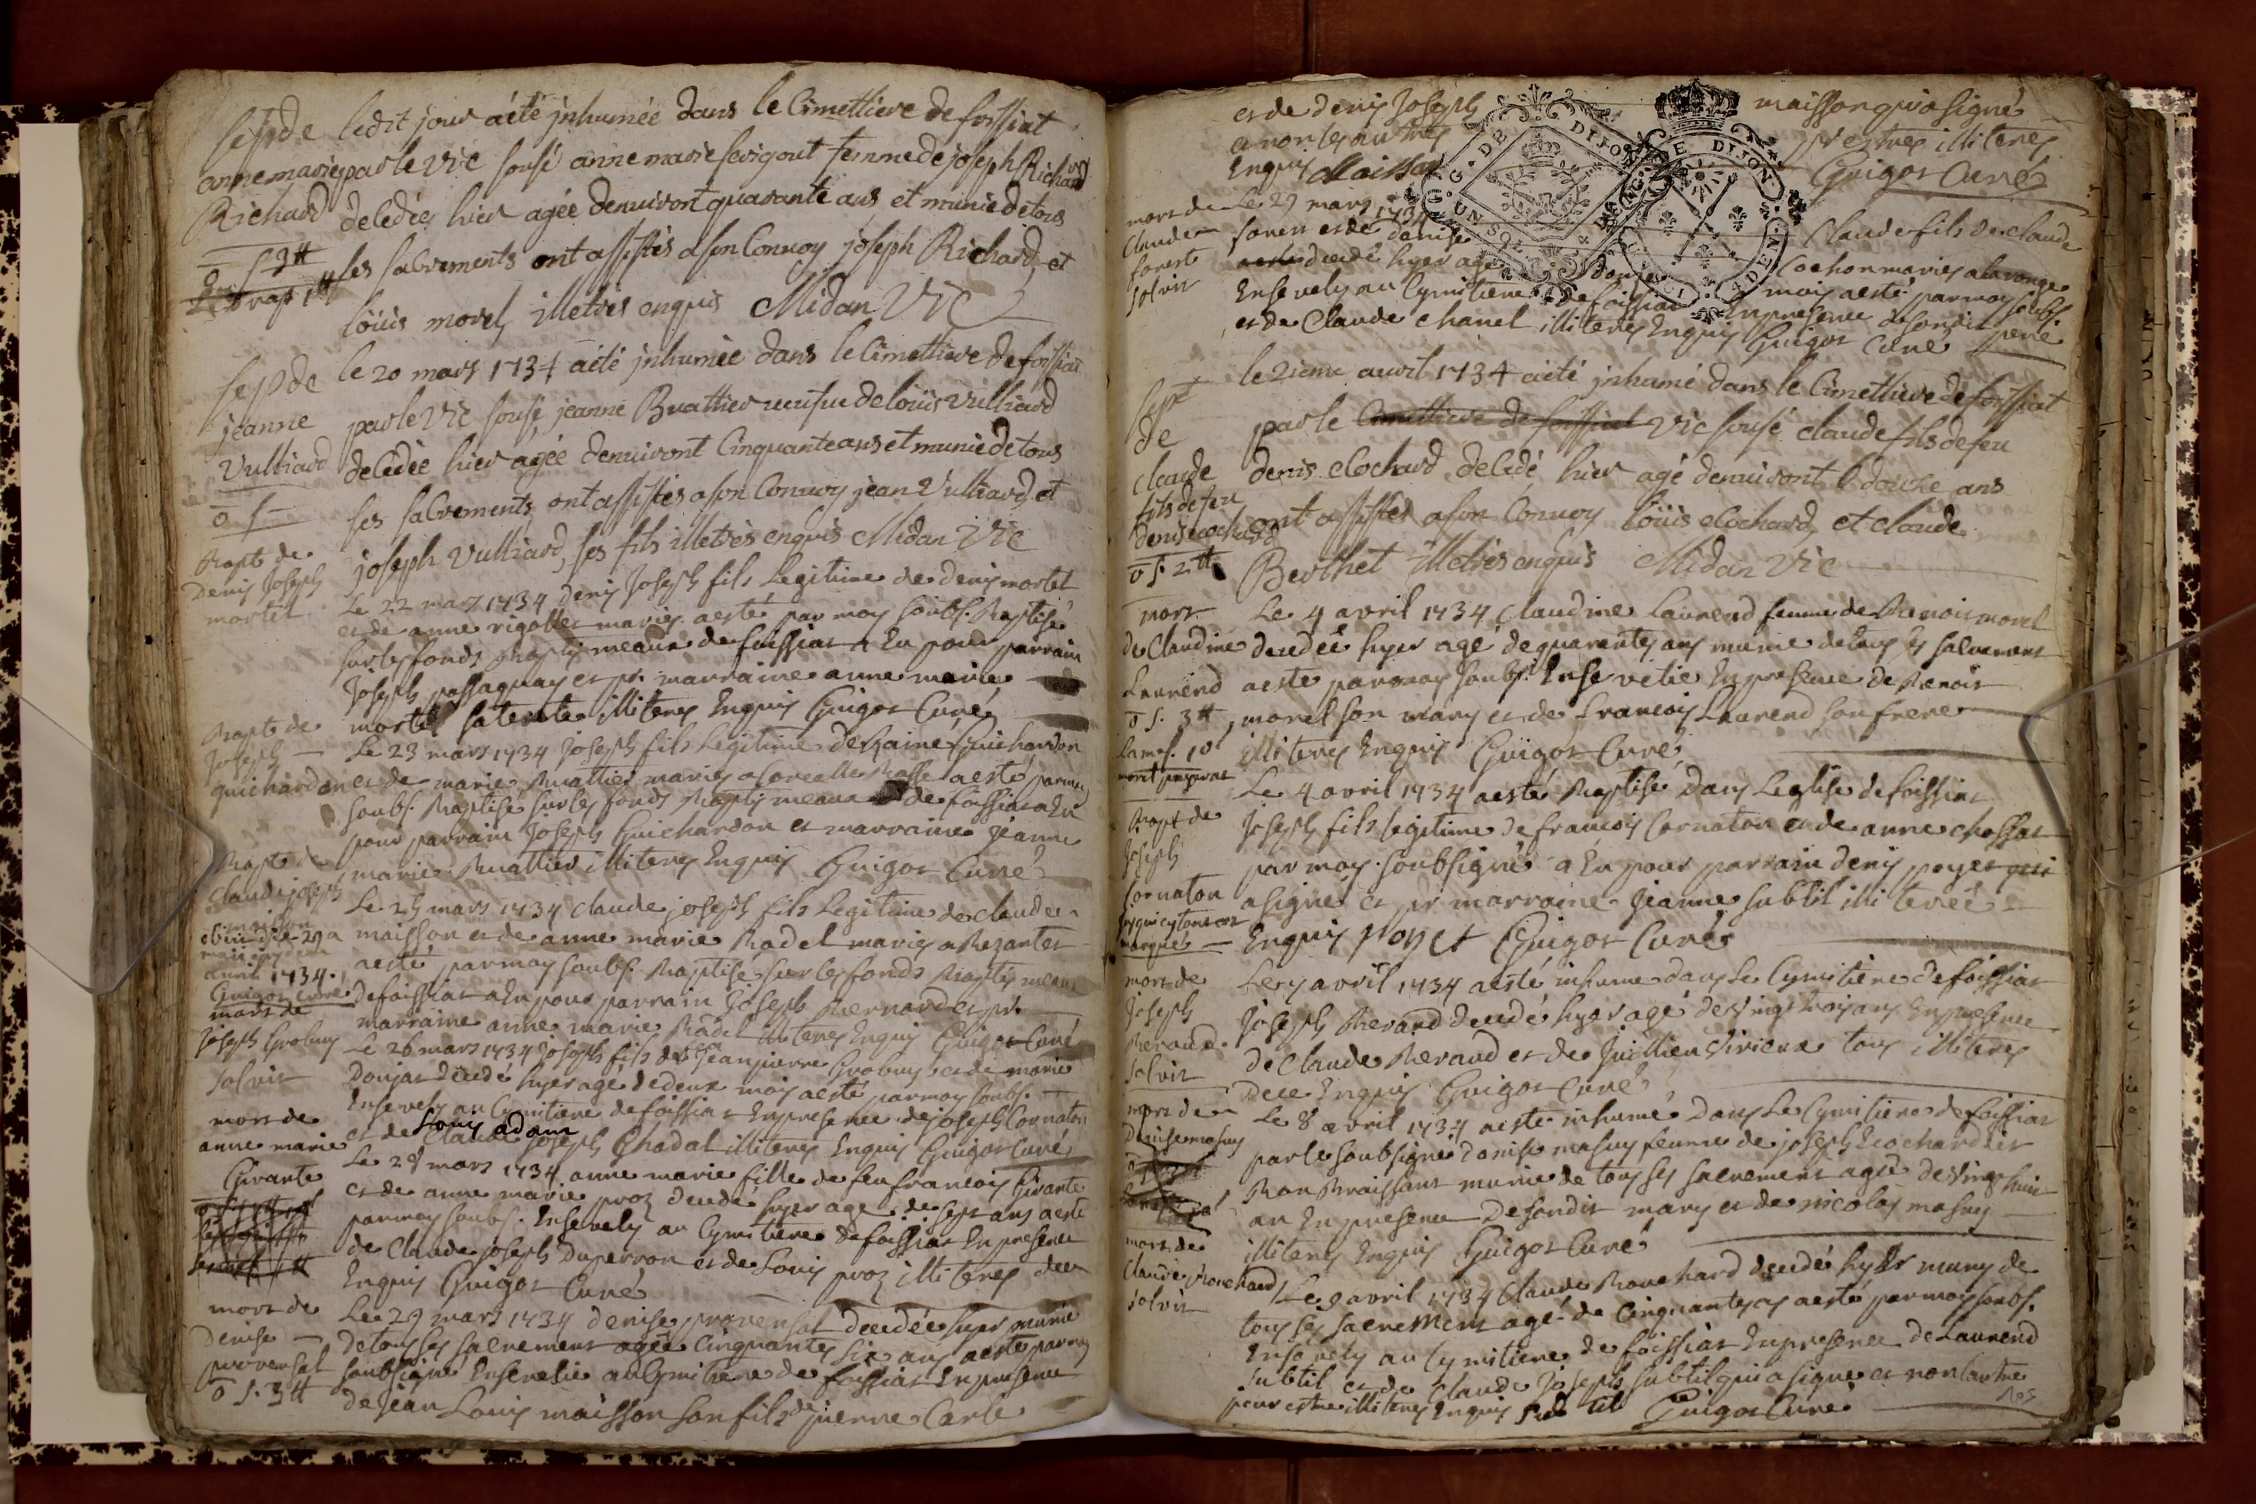 sep de
anne marie
Richard
ledit jour aété jnhumée dans le Cimettiere de foissiat
par le Vic sousé anne marie sevigout femme de joseph Richard
decedée hier agée denuiront quarante ans et munie de tous
ses sacrements ont assistés a son Conuoy joseph Richard, et
loüis morel, illetrés enquis Midan Vic
sep de
jeanne
Vulliard
le 20 mars 1734 aété jnhumée dans le Cimettiere de foissiat
par le Vic sousé, jeanne Buathier veufue de loüis Vulliard
decedée hier agée denuiront Cinquante ans et munie de tous
ses sacrements, ont assistés a son Conuoy jean Vulliard, et
joseph Vulliard, ses fils illetrés enquis Midan Vic
Bapt de
Denis Joseph
mortel
Le 22 mars 1734 denis Joseph fils Legitime de denis mortel
et de anne rigollet mariés aesté par moy soubs. Baptisé
sur les fonds Baptismeaux de foissiat a Eu pour parrain
Joseph passaquay et pr. marraine anne marie
mortel sa tente illiterés Enquis Guigot Curé
Bapt de
Joseph
guichardon
Le 23 mars 1734 Joseph fils Legitime de Guichardon
et de marie Buathier mariés a aesté par moy
soubs. Baptisé sur les fonds Baptismeaux de foissiat a Eu
pour parrain Joseph Guichardon et marraine Jeanne
marie Buathier illiterés Enquis Guigot Curé
Bapt de
Claude joseph
maisson
mars
année 1734.
Guigot curé
Le 25 mars 1734 Claude joseph fils Legitime de Claude
maisson et de anne marie Badel mariés a Bezantet
aesté par moy soubs. Baptisé sur les fonds Baptismeaux
de foissiat a Eu pour parrain Joseph Bernard et pr.
marraine anne marie Badel illiterés Enquis Guigot Curé
mort de
Joseph Grobuy
solvit
Le 26 mars 1734 Joseph fils de Jean pierre Grobuy et de marie
Doujat décédé hyer agé de deux mois aesté par moy soubs.
Ensevely au Cymitiere de foissiat En presence de joseph Cornaton
et de Claude joseph Chadal illiterés Enquis Guigot Curé
Louis adam
mort de
anne marie
Girante
Le 28 mars 1734 anne marie fille de feu francois Girante
et de anne marie proz decedé hyer age de sept ans aesté
par moy soubs. Ensevely au Cymitiere de foissiat En presence
de Claude joseph Duperron et de Louis proz illiterés de ce
Enquis Guigot Curé
mort de
denise
provensal
ō s. 3 tt
Le 29 mars 1734 denise provensal decedée hyer munie
de tous ses sacrement agée Cinquantes six ans aesté par moy
soubsigné Ensevelie au Cymitiere de foissiat En presence
de Jean Louis maisson son fils de pierre Carle
et de denis Joseph maisson qui a signé
a non les autres illiterés
Enquis Maisson Guigot Curé
G. G. DE DIJON
UN SOL
DE DIJON
mort de
Claude
forest
solvit
Le 29 mars 1734 Claude fils de Claude
forest et de denise Cochon mariés a la
decedé hyer agé douze mois aesté par moy soubs.
Ensevely au Cymitiere de foissiat En presence de sondit pere
et de Claude chanel illiterés Enquis Guigot Curé
sept
de
claude
fils de feu
denis clochard
ō s. 2 tt
le 2ieme auril 1734 aété jnhumé dans le Cimettiere de foissiat
par le Cimettiere de foissiat Vic sousé claude fils de feu
denis clochard, decedé hier agé denuiront douze ans
ont assistés a son Conuoy loüis clochard, et claude
Berthet illetrés enquis Midan Vic
mort
de Claudine
Laurend
ō s. 3 tt
Le 4 avril 1734 Claudine Laurend femme de Benoit morel
decedée hyer agé de quarantes ans munie de tous ses sacrement
aesté par moy soubs. Ensevelie En presence de Benoit
morel son mary et de francois Laurend son frere
illiterés Enquis Guigot Curé
Bapt de
Joseph
Cornaton
Le 4 avril 1734 aesté Baptisé dans Leglise de foissiat
Joseph fils legitime de francois Cornaton et de anne chossat
par moy soubsigné a Eu pour parrain denis poyet qui
a signé et pr marraine Jeanne subtil illiterée
Enquis poyet Guigot Curé
mort de
Joseph
Beraud
solvit
Le 7 avril 1734 aesté inhume dans Le Cymitiere de foissiat
Joseph Berard decedé hyer agé de vingt trois ans En presence
de Claude Beraud et de Juillien Virieux tous illiterés
de ce Enquis Guigot Curé
mort de
denise masuy
Le 8 avril 1734 aesté inhumé dans Le Cymitiere de foissiat
par le soubsigné denise masuy femme de joseph
munie de tous ses sacrement agée de vingt huit
an En presence de sondit mary et de nicolas masuy
illiterés Enquis Guigot Curé
mort de
Claude Bouchard
solvit
Le 9 avril 1734 Claude Bouchard decedé hyer muny de
tous ses sacrement agé de Cinquantes ans aesté par moy soubs.
Ensevely au Cymitiere de foissiat En presence de Laurend
subtil et de Claude Joseph subtil qui a signé et non lautre
pour estre illiterés Enquis subtil Guigot Curé
105